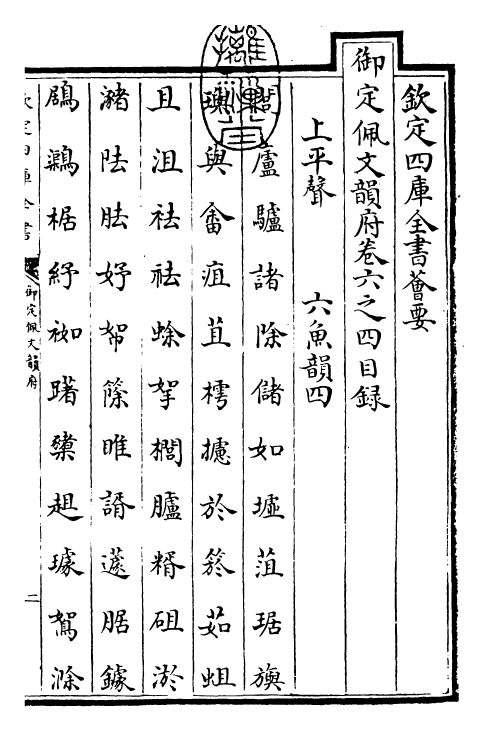 欽定四庫全書薈要
御定佩文韻府卷六之四目録
上平聲　六魚韻四
閭廬驢諸除儲如墟菹琚旟
璵與畬疽苴樗攄於箊茹蛆
且沮袪祛蜍挐櫚臚糈砠淤
瀦阹胠妤帤篨睢諝蘧腒鐻
鶋椐紓袽躇趄璩鴽滁
欽定四庫全書
御定佩文韻府
二